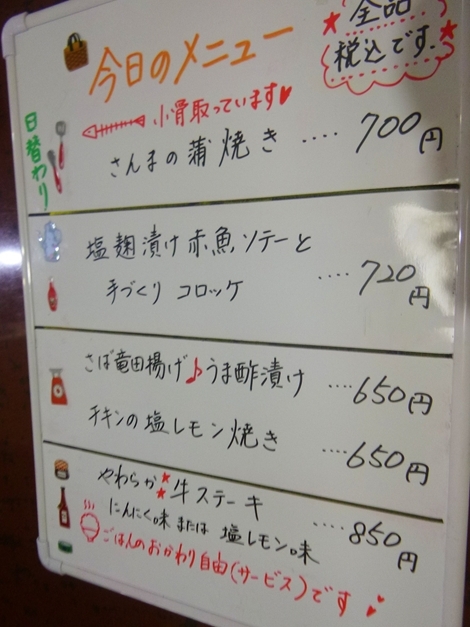 全品
税込です.
今日のメニュー
日替わり
小骨取っています♥
さんまの蒲焼き ････ 700円
塩麹漬け赤魚ソテーと
手づくりコロッケ ････ 720円
さば竜田揚げ♪うま酢漬け ････650円
チキンの塩レモン焼き ････650円
やわらか牛ステーキ
にんにく味または塩レモン味 ････850円
ごはんのおかわり自由(サービス)です